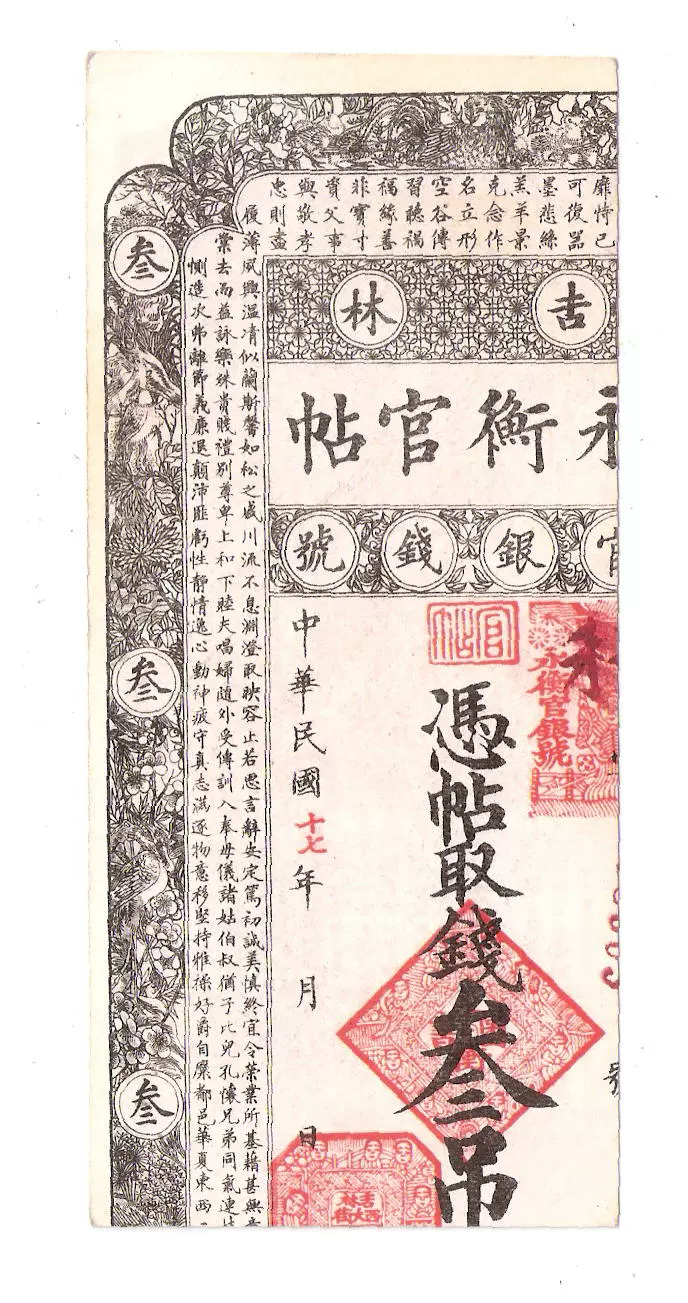 靡恃己
可復器
墨悲絲
羔羊景
克念作
名立形
空谷傳
習聽禍
福緣善
非寶寸
資父事
與敬孝
忠則盡
履薄夙興溫清似蘭斯馨如松之盛川流不息淵澄取映容止若思言辭安定篤初誠美慎終宜令榮業所基藉甚無
棠去而益詠樂殊貴賤禮別尊卑上和下睦夫唱婦隨外受傅訓入奉母儀諸姑伯叔猶子比兒孔懷兄弟同氣連
惻造次弗離節義廉退顛沛匪虧性靜情逸心動神疲守真志滿逐物意移堅持雅操好爵自縻都邑華夏東西
吉林
永衡官帖
官銀錢號
永衡官銀號
官帖
憑帖取錢叁吊
中華民國十七年 月 日
吉林西大街
叁
叁
叁